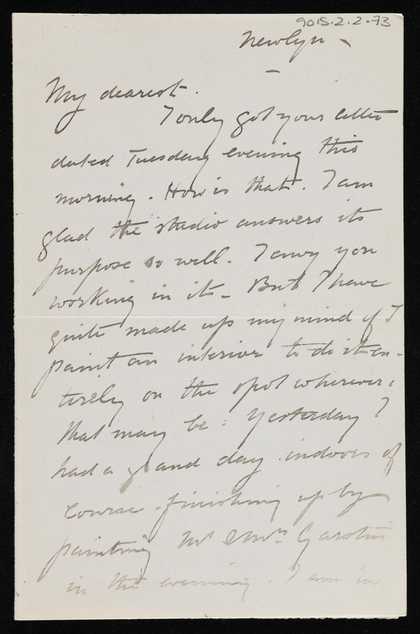 9015.2.2.73
Newlyn -
My dearest.
I only got your letter
dated Tuesday evening this
morning. How is that. I am
glad the studio answers its
purpose so well. I envy you
working in it - But I have
quite made up my mind if I
paint an interior to do it en-
tirely on the spot wherever
that may be: Yesterday I
had a grand day indoors of
course - finishing up by
painting Mr & Mrs Garstin
in the evening. I am in